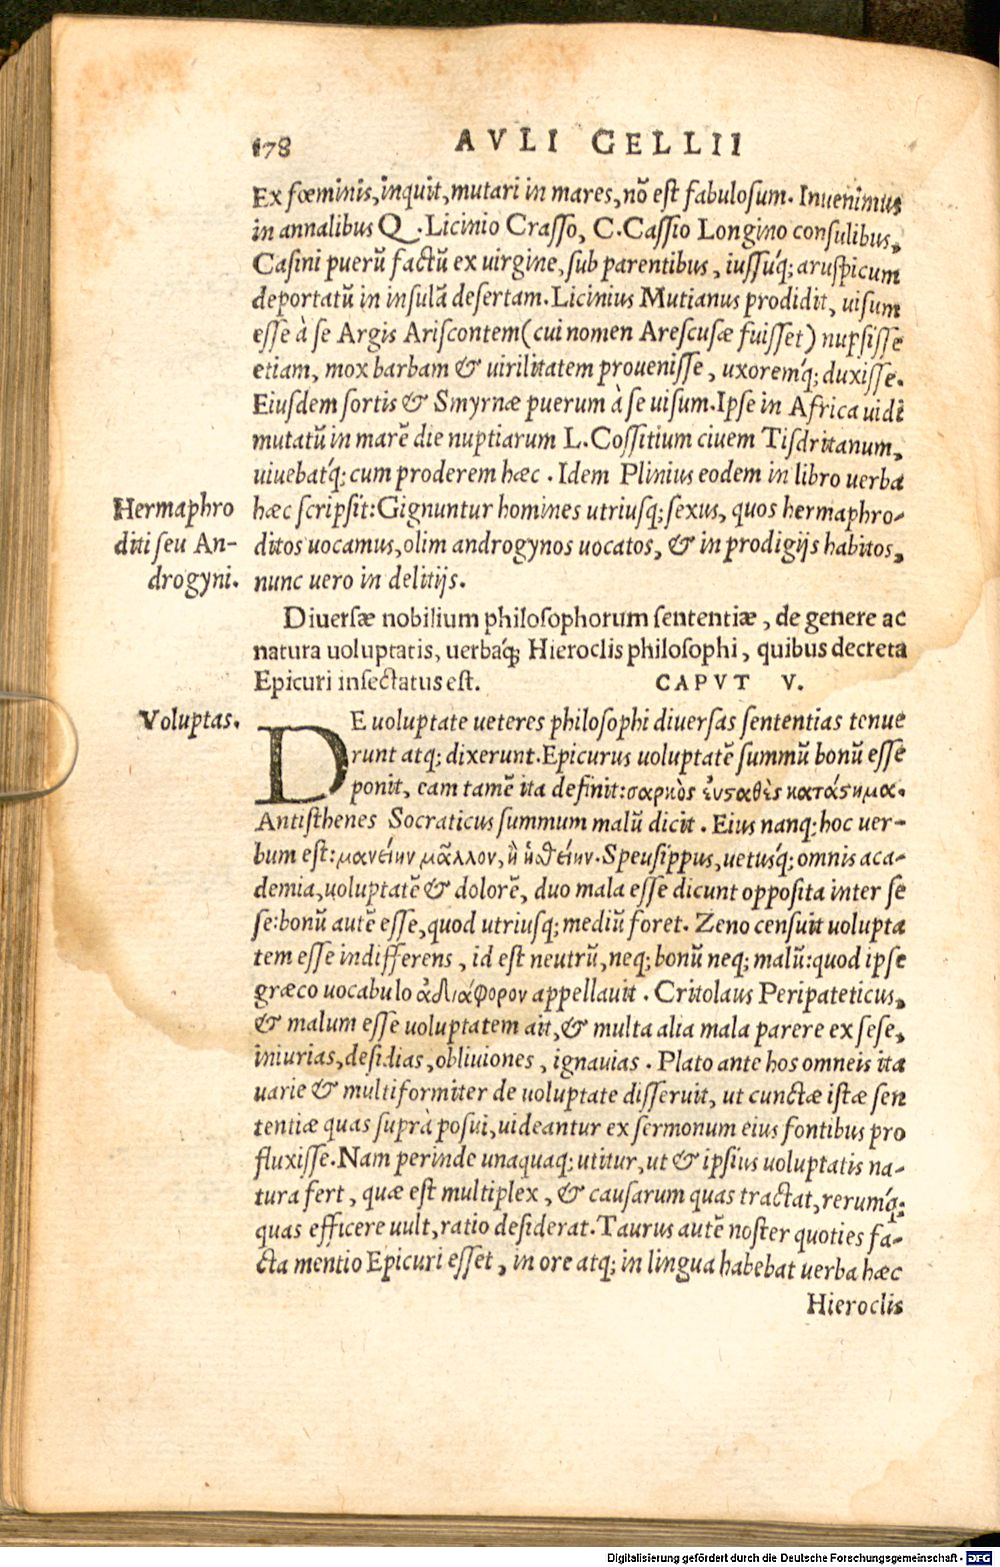 178 AVLI GELLII
Ex fœminis, inquit, mutari in mares, nõ est fabulosum. Inuenimus
in annalibus Q. Licinio Crasso, C. Cassio Longino consulibus,
Casini puerũ factũ ex uirgine, sub parentibus, iussúq; aruspicum
deportatũ in insulã desertam. Licinius Mutianus prodidit, uisum
esse à se Argis Ariscontem (cui nomen Arescusæ fuisset) nupsisse
etiam, mox barbam & uirilitatem prouenisse, uxoremq́; duxisse.
Eiusdem sortis & Smyrnæ puerum à se uisum. Ipse in Africa uidi
mutatũ in marẽ die nuptiarum L. Cossitium ciuem Tisdritanum,
uiuebatq́; cum proderem hæc. Idem Plinius eodem in libro uerba
Hermaphro
diti seu An-
drogyni.
hæc scripsit: Gignuntur homines utriusq; sexus, quos hermaphro-
ditos uocamus, olim androgynos uocatos, & in prodigijs habitos,
nunc uero in delitijs.
Diuersæ nobilium philosophorum sententiæ, de genere ac
natura uoluptatis, uerbáq; Hieroclis philosophi, quibus decreta
Epicuri insectatus est. CAPVT V.
Voluptas.
DE uoluptate ueteres philosophi diuersas sententias tenue
runt atq; dixerunt. Epicurus uoluptatẽ summũ bonũ esse
ponit, eam tamẽ ita definit: σαρκὸς ἐυσταθὲς κατάστημα.
Antisthenes Socraticus summum malũ dicit. Eius nanq; hoc uer-
bum est: μανείην μᾶλλον, ἢ ἡσθείην. Speusippus, uetusq́; omnis aca-
demia, uoluptatẽ & dolorẽ, duo mala esse dicunt opposita inter se
se: bonũ autẽ esse, quod utriusq; mediũ foret. Zeno censuit uolupta
tem esse indifferens, id est neutrũ, neq; bonũ neq; malũ: quod ipse
græco uocabulo ἀδιάφορον appellauit. Critolaus Peripateticus,
& malum esse uoluptatem ait, & multa alia mala parere ex sese,
iniurias, desidias, obliuiones, ignauias. Plato ante hos omneis ita
uarie & multiformiter de uoluptate disseruit, ut cunctæ istæ sen
tentiæ quas suprà posui, uideantur ex sermonum eius fontibus pro
fluxisse. Nam perinde unaquaq; utitur, ut & ipsius uoluptatis na-
tura fert, quæ est multiplex, & causarum quas tractat, rerumq́;
quas efficere uult, ratio desiderat. Taurus autẽ noster quoties fa-
cta mentio Epicuri esset, in ore atq; in lingua habebat uerba hæc
Hieroclis
Digitalisierung gefördert durch die Deutsche Forschungsgemeinschaft - DFG